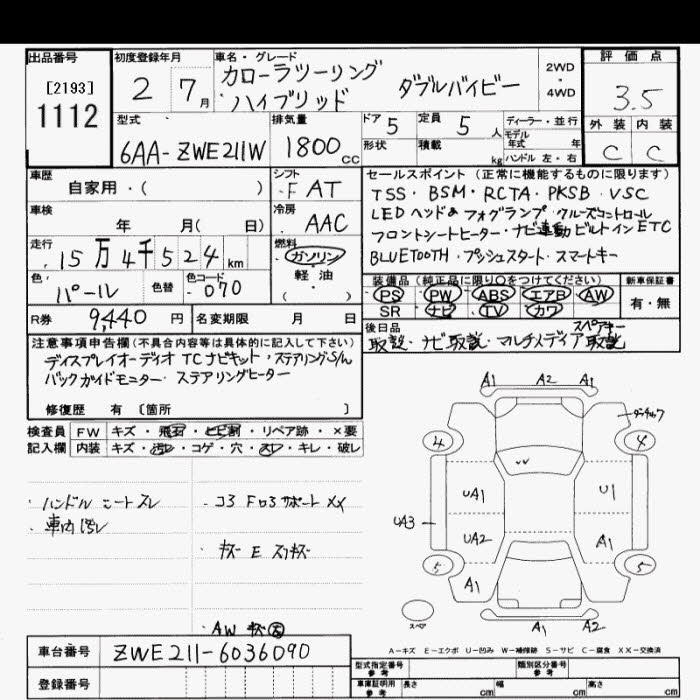 出品番号
[2193]
1112
初度登録年月
2 7月
車名・グレード
カローラツーリング
ハイブリッド ダブルバイビー
2WD
・
4WD
評価点
3.5
外装 内装
C C
型式
6AA-ZWE211W
排気量
1800cc
ドア 5
定員 5人
形状
積載 kg
ディーラー・並行
モデル年式 年
ハンドル 左・右
車歴
自家用・( )
車検
年 月( 日)
走行
15万4千524km
色
パール
色替
色コード
070
シフト
F AT
冷房
AAC
燃料
ガソリン
軽油
・( )
セールスポイント (正常に機能するものに限ります)
TSS・BSM・RCTA・PKSB・VSC
LEDヘッド& フォグランプ・クルーズコントロール
フロントシートヒーター・ナビ連動ビルトインETC
BLUETOOTH・プッシュスタート・スマートキー
装備品 (純正品に限り○をつけてください)
PS PW ABS エアB AW
SR ナビ TV カワ
新車保証書
有・無
R券 9,440円
名変期限 月 日
後日品
スペアキー
取説・ナビ取説・マルチメディア取説
注意事項申告欄 (不具合内容等は具体的に記入して下さい)
ディスプレイオーディオ TCナビキット・ステアリングS/W
バックガイドモニター・ステアリングヒーター
修復歴 有 〔箇所 〕
検査員記入欄
FW キズ・飛石・ヒビ割・リペア跡・×要
内装 キズ・汚レ・コゲ・穴・スレ・キレ・破レ
・ハンドル シートスレ
・車内汚レ
・コアサポート XX
・キズ E スリキズ
・AW キズ大
A1 A2 A1
4 4
UA1 U1
UA3
UA2 A1
5 5
A1
スペア
A1 A2
A-キズ E-エクボ U-凹み W-補修跡 S-サビ C-腐食 XX-交換済
車台番号 ZWE211-6036090
登録番号
型式指定番号 参考
類別区分番号 参考
車庫証明用 参考
長さ cm
幅 cm
高さ cm